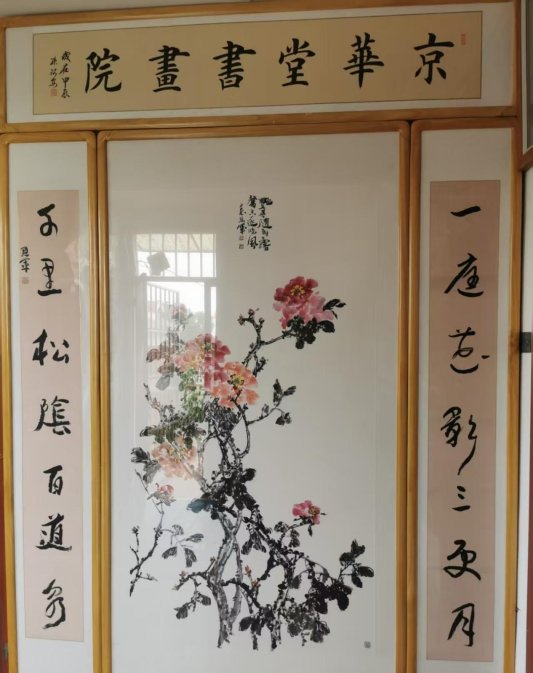 京華堂書畫院
歲在甲辰
一庭花影三更月
千里松陰百道泉